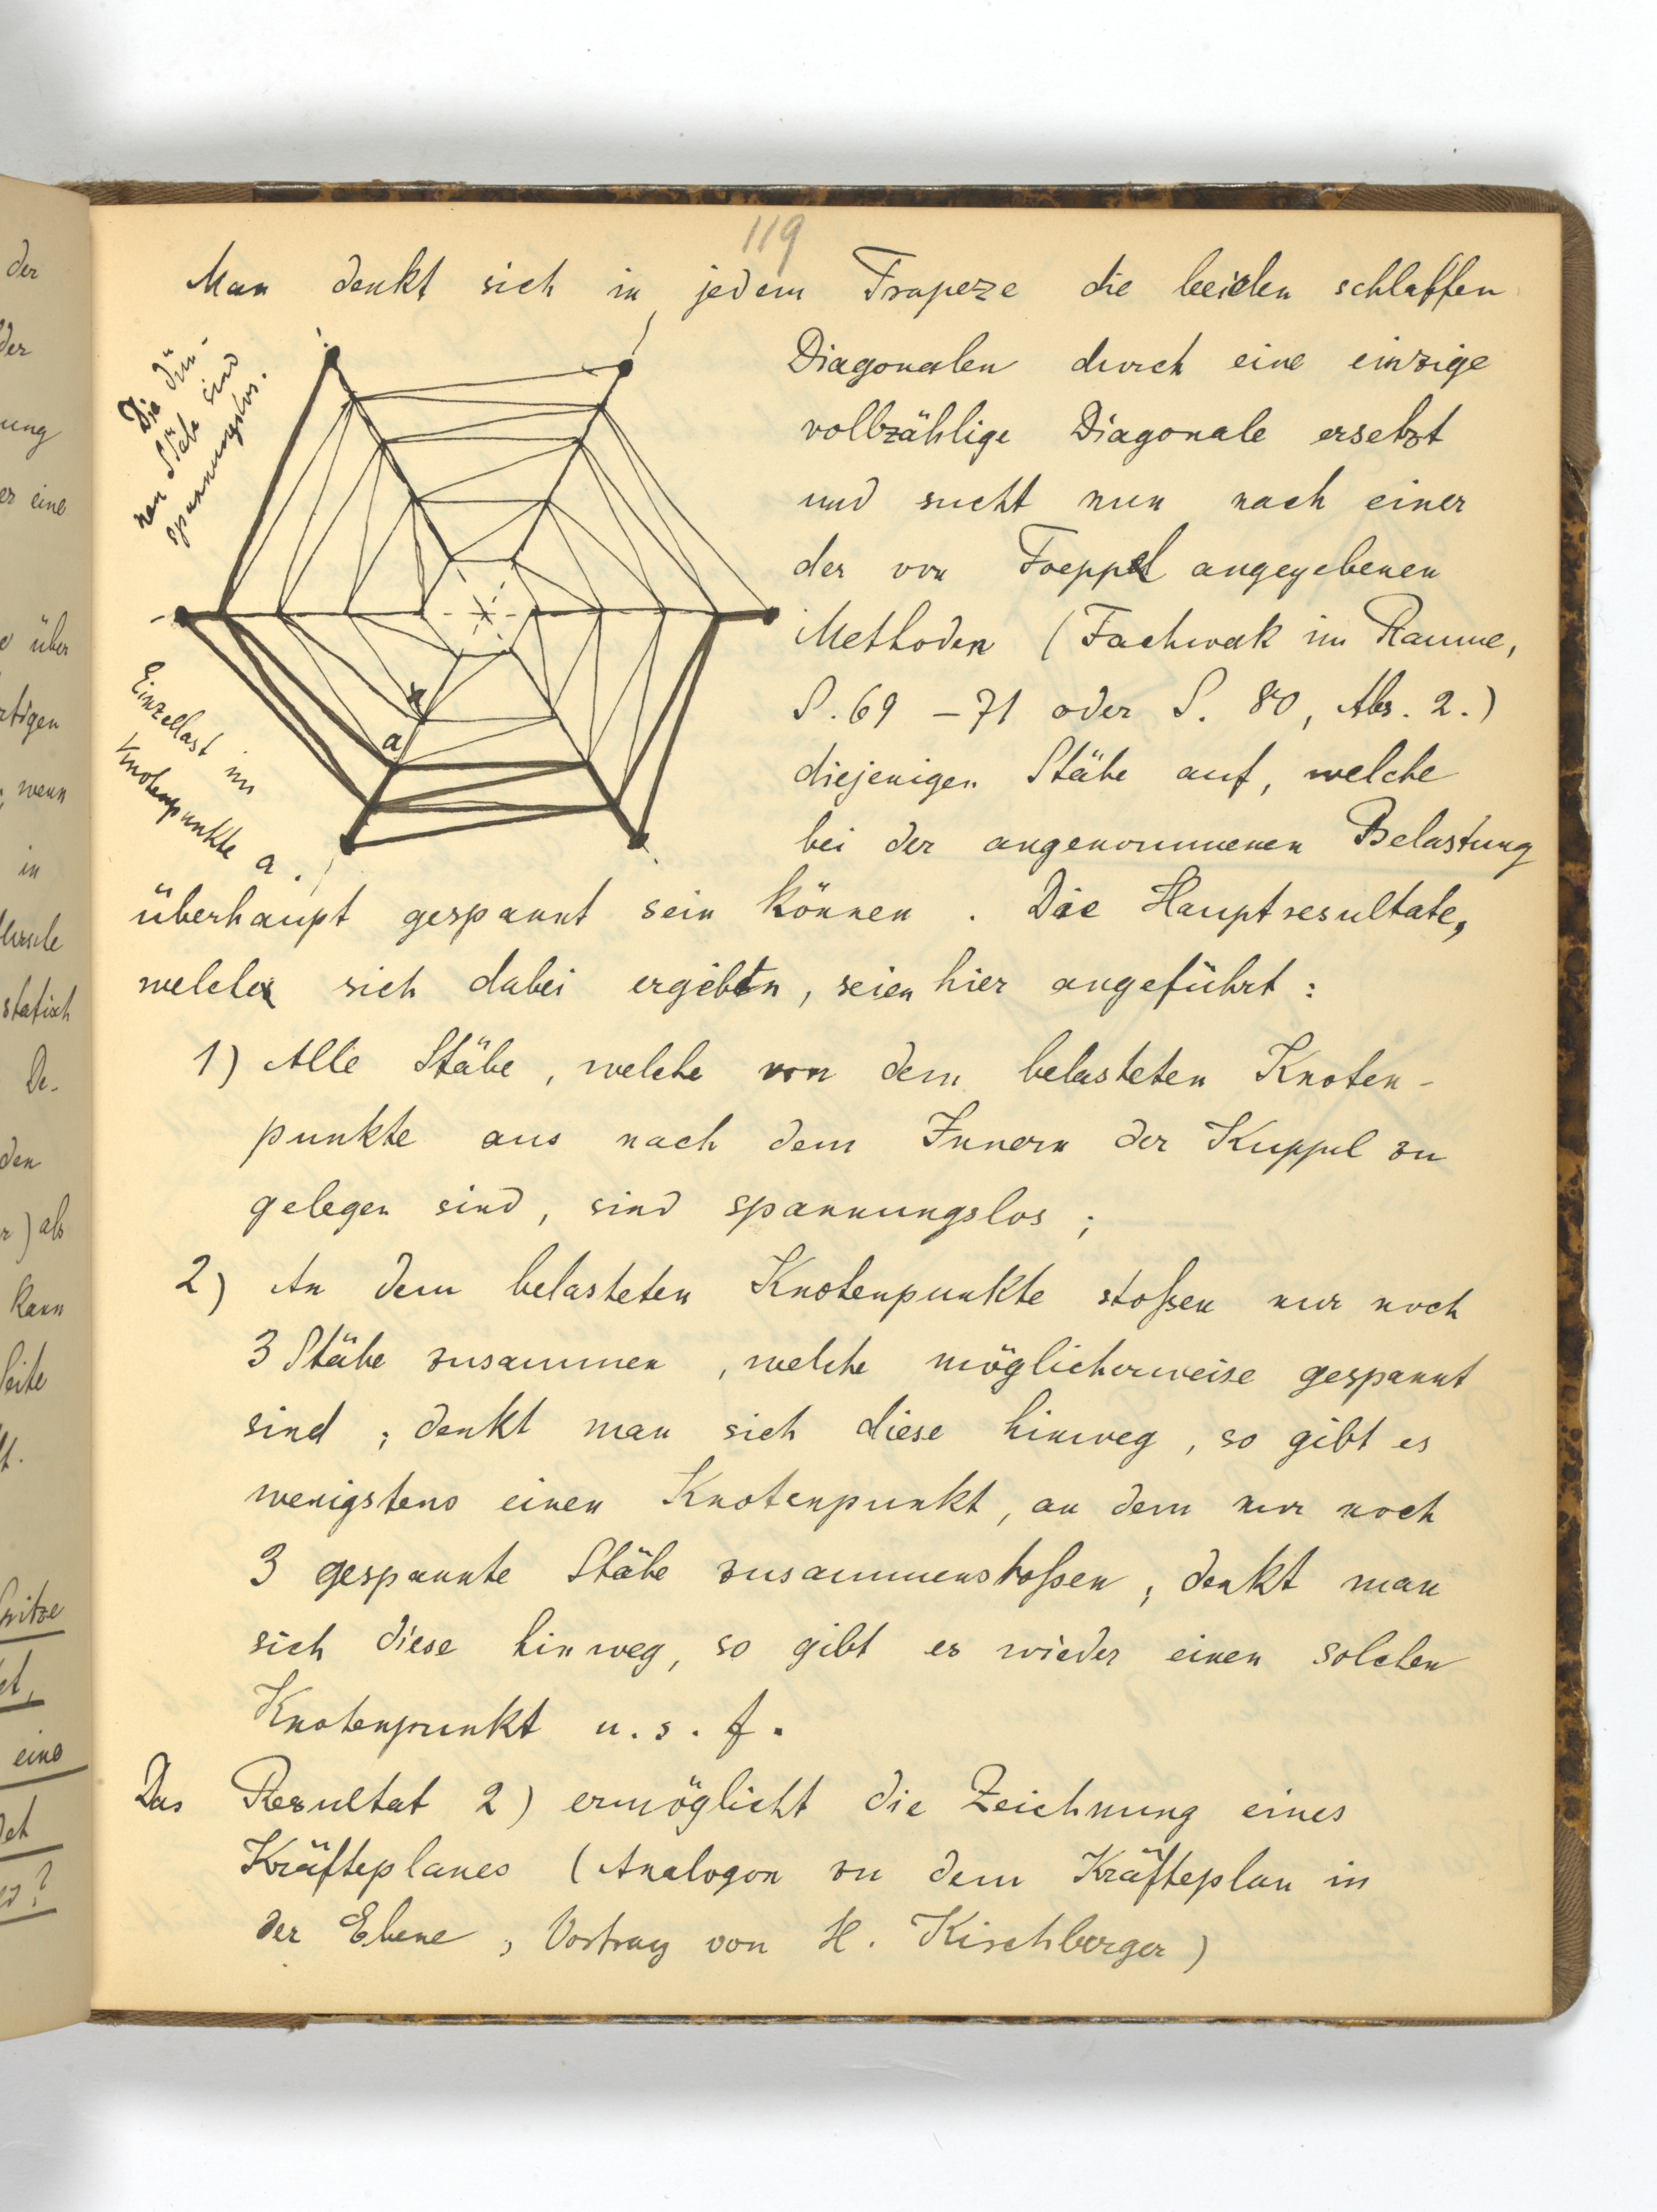 119
Man denkt sich in jedem Trapeze die beiden schlaffen
Diagonalen durch eine einzige
vollzählige Diagonale ersetzt
und sucht nun nach einer
der von Foeppel angegebenen
Methoden (Fachwerk im Raume,
S. 69 – 71 oder S. 80, Abs. 2.)
diejenigen Stäbe auf, welche
bei der angenommenen Belastung
Die dün-
nen Stäbe sind
spannungslos.
a
Einzellast im
Knotenpunkte a.
überhaupt gespannt sein können. Die Hauptresultate,
welche sich dabei ergeben, seien hier angeführt:
1) Alle Stäbe, welche von dem belasteten Knoten-
punkte aus nach dem Innern der Kuppel zu
gelegen sind, sind spannungslos;
2) An dem belasteten Knotenpunkte stoßen nur noch
3 Stäbe zusammen, welche möglicherweise gespannt
sind; denkt man sich diese hinweg, so gibt es
wenigstens einen Knotenpunkt, an dem nur noch
3 gespannte Stäbe zusammenstoßen; denkt man
sich diese hinweg, so gibt es wieder einen solchen
Knotenpunkt u. s. f.
Das Resultat 2) ermöglicht die Zeichnung eines
Kräfteplanes (Analogon zu dem Kräfteplan in
der Ebene, Vortrag von H. Kirchberger)
der
der
ung
er eine
über
rtigen
wenn
in
statisch
De-
den
) als
kann
Seite
eine